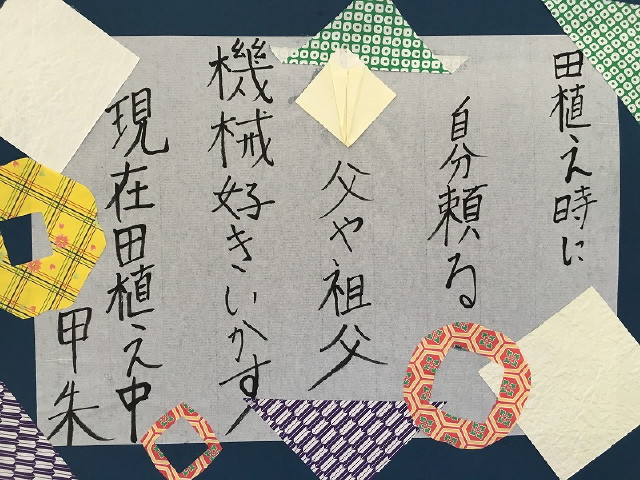 田植え時に
自分頼る
父や祖父
機械好きいかす
現在田植え中
甲朱